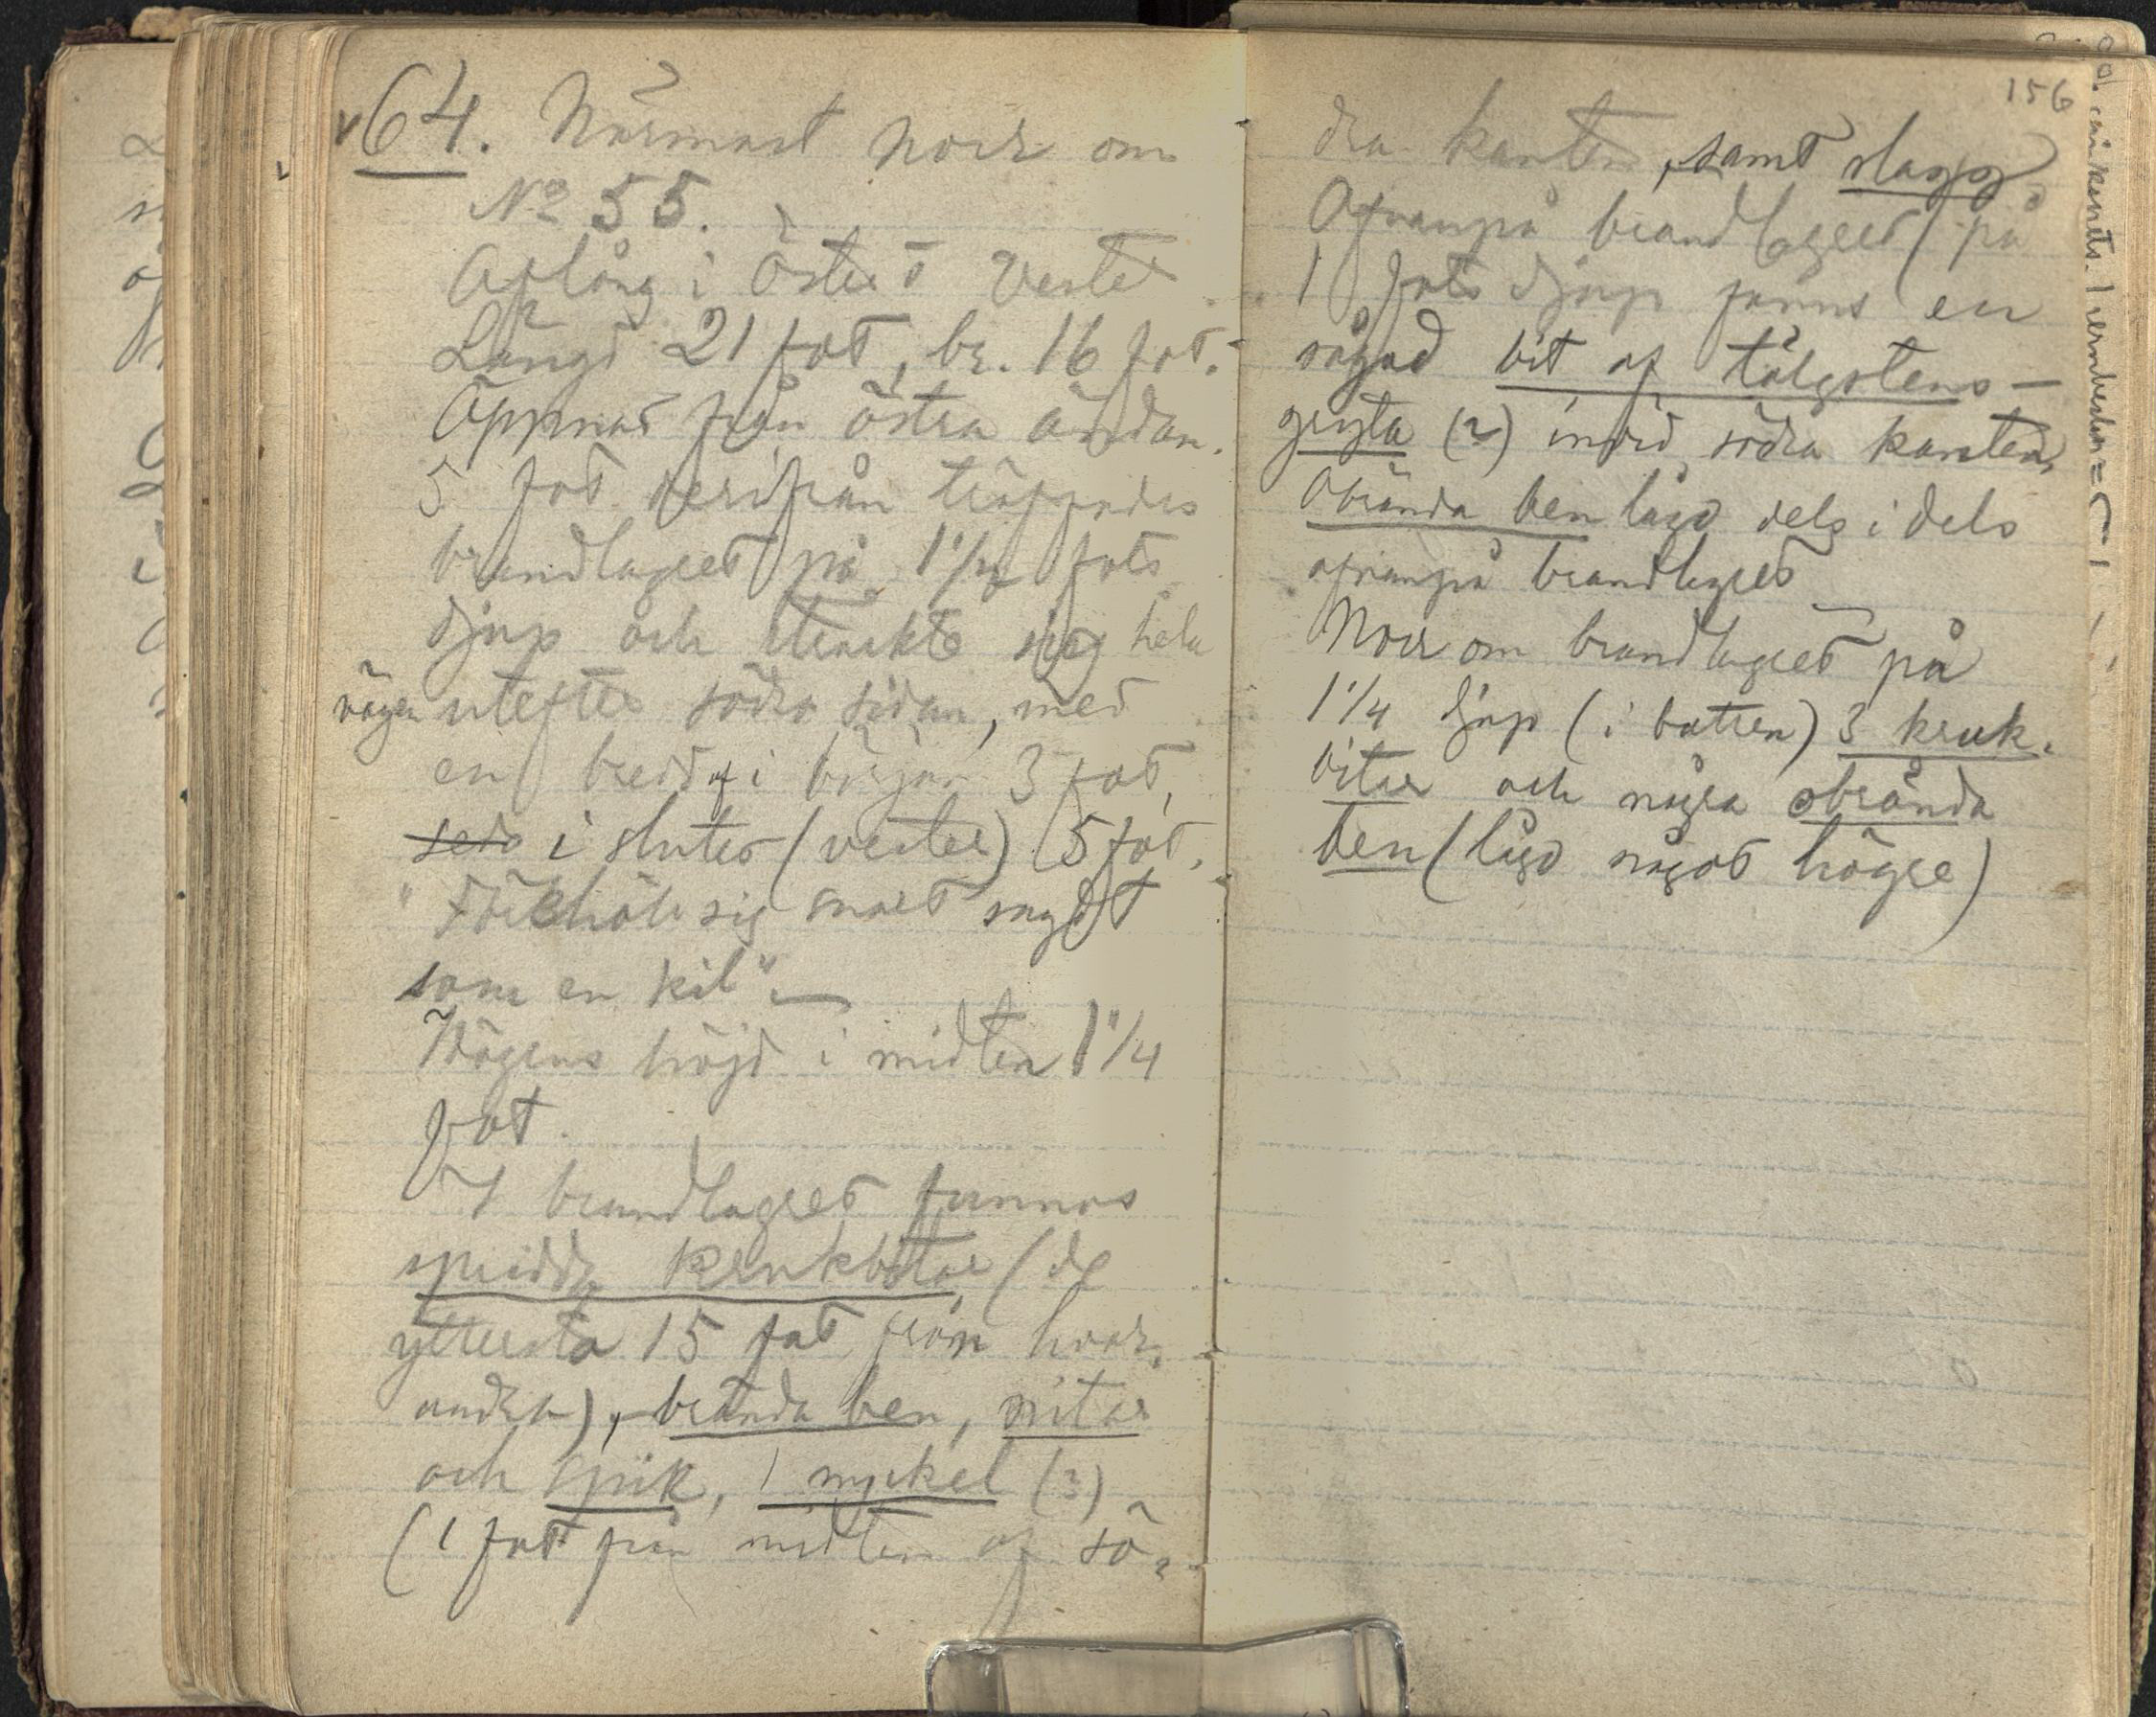 64. Närmast norr om
No 55.
Aflång i öster o vester
Längd 21 fot, br. 16 fot.
Öppnad från östra ändan.
5 fot derifrån träffades
brandlagret på 1 1/2 fots
djup och sträckte sig hela
vägen utefter södra sidan, med
en bredd af i början 3 fot,
i slutet (vester) 5 fot.
"Förehöll sig snart sagdt
som en kil".—
Högens höjd i midten 1 1/4
fot.
I brandlagret funnos
spridda krukbitar (de
yttersta 15 fot från hvar
andra), brända ben, nitar
och spik, 1 nyckel (?)
(1 fot från midten af sö-
156
dra kanten, samt slagg.
Ofvanpå brandlagret (på
1 fots djup fanns en
sågad bit af täljstens-
gryta (?) invid södra kanten
Obrända ben lågo dels i dels
ofvanpå brandlagret
Norr om brandlagret på
1 1/4 djup (i botten) 3 kruk-
bitar och några obrända
ben (lågo något högre)